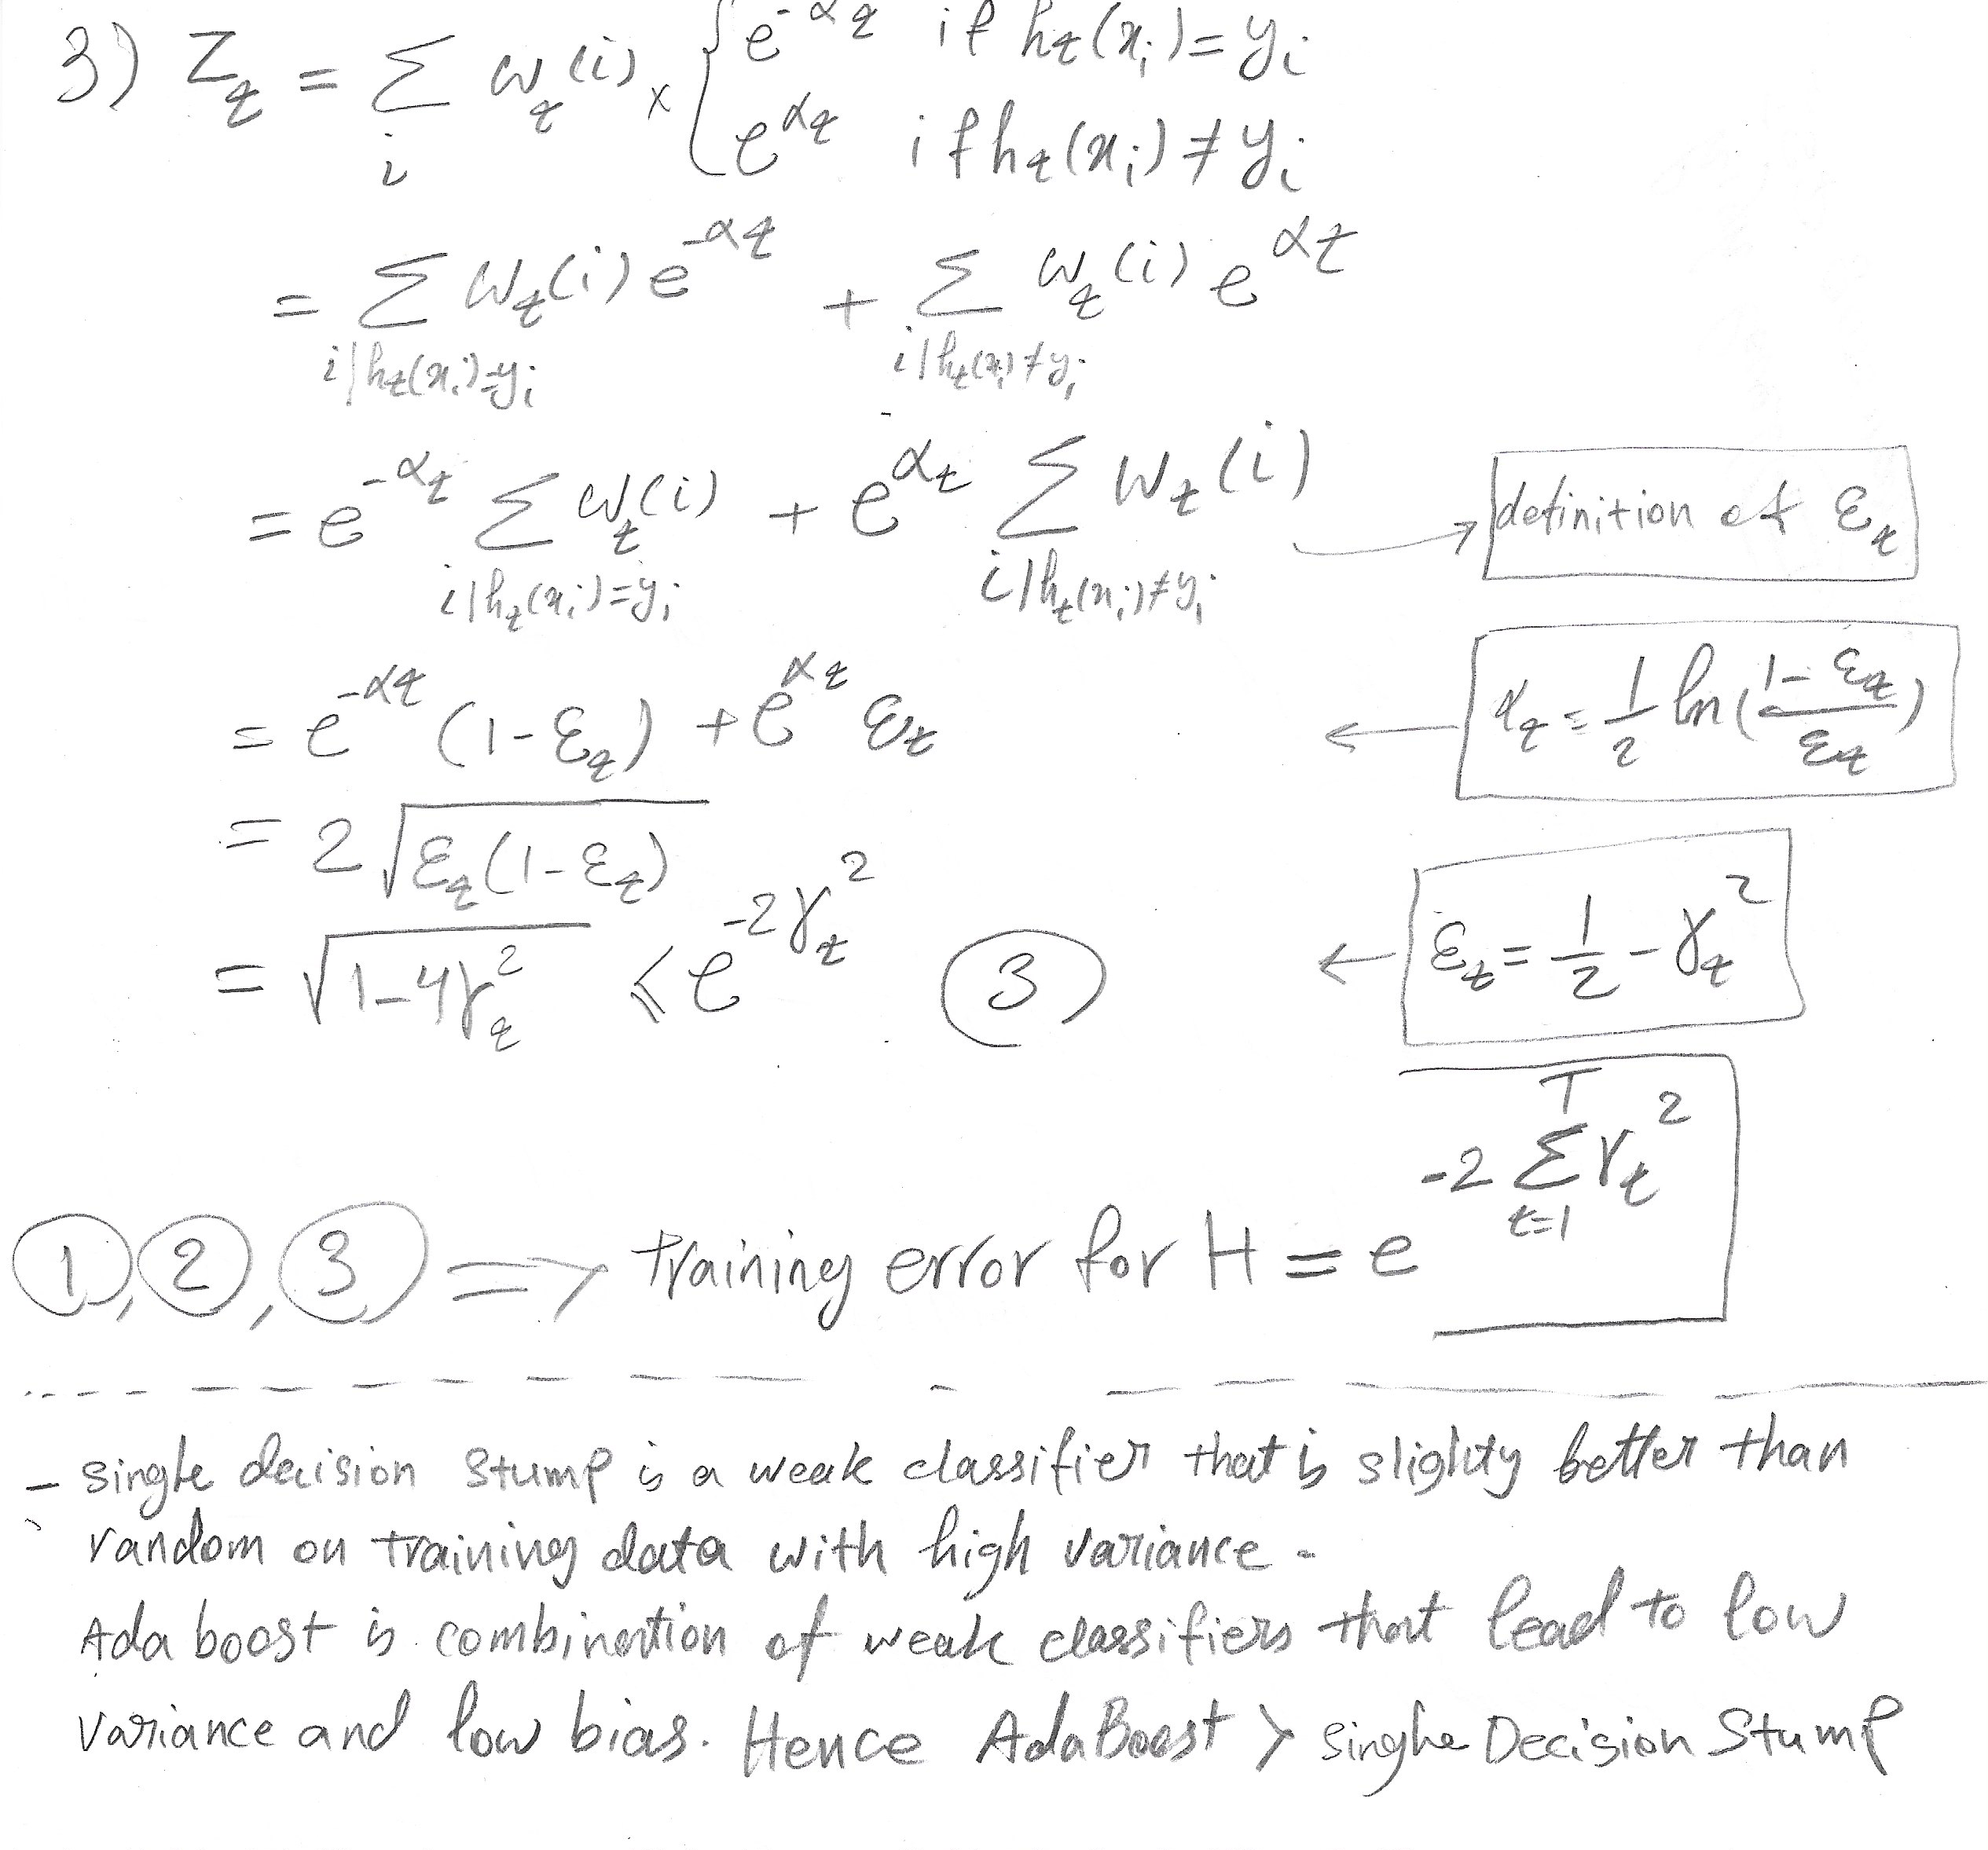 3) Z_t = Σ_i w_t(i) × { e^{-α_t} if h_t(x_i) = y_i
e^{α_t} if h_t(x_i) ≠ y_i
= Σ_{i|h_t(x_i)=y_i} w_t(i) e^{-α_t} + Σ_{i|h_t(x_i)≠y_i} w_t(i) e^{α_t}
= e^{-α_t} Σ_{i|h_t(x_i)=y_i} w_t(i) + e^{α_t} Σ_{i|h_t(x_i)≠y_i} w_t(i) → definition of ε_t
= e^{-α_t} (1-ε_t) + e^{α_t} ε_t ← α_t = 1/2 ln((1-ε_t)/ε_t)
= 2√(ε_t(1-ε_t))
= √(1-4γ_t^2) ≤ e^{-2γ_t^2} (3) ← ε_t = 1/2 - γ_t^2
(1), (2), (3) => training error for H = e^{-2 Σ_{t=1}^T γ_t^2}
- single decision stump is a weak classifier that is slighty better than
random on training data with high variance.
Ada boost is combination of weak classifiers that lead to low
variance and low bias. Hence AdaBoost > single Decision Stump